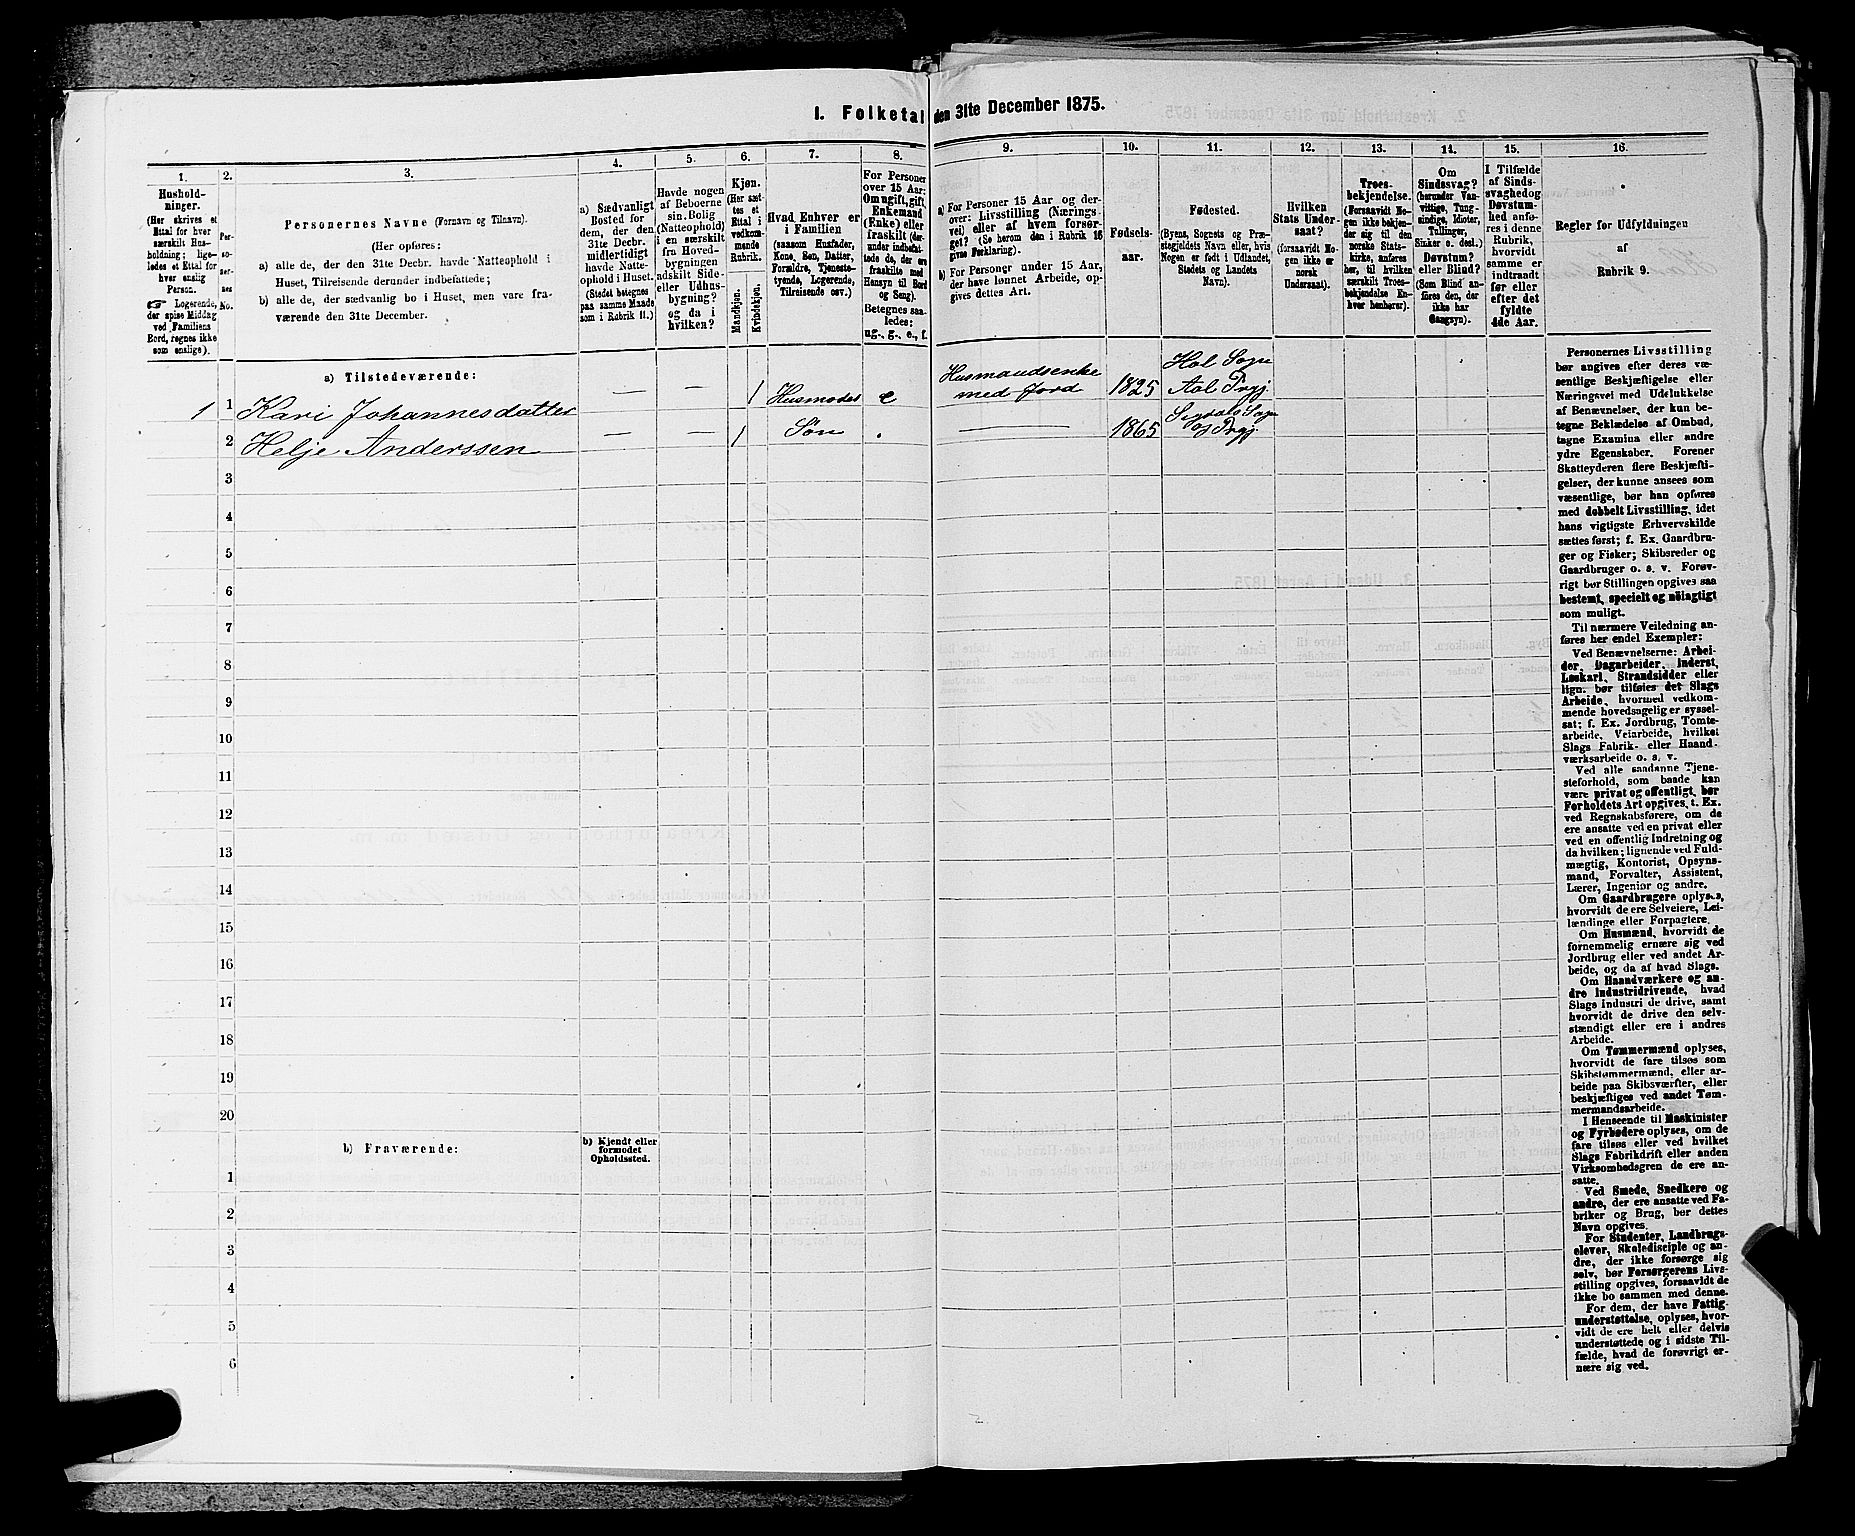 I. Folketal den 31te December 1875.
1. 2. 3. 4. 5. 6. 7. 8. 9. 10. 11. 12. 13. 14. 15. 16.
Hushold-
ninger.
(Her skrives et
Ettal for hver
særskilt Hus-
holdning; lige-
ledes et Ettal for
hver enslig
Person.
☞ Logerende,
der spise Middag
ved Familiens
Bord, regnes ikke
som enslige).
Per-
so-
ner-
nes
No.
Personernes Navne (Fornavn og Tilnavn).
(Her opføres:
a) alle de, der den 31te Decbr. havde Natteophold i
Huset, Tilreisende derunder indbefattede;
b) alle de, der sædvanlig bo i Huset, men vare fra-
værende den 31te December.
a) Sædvanligt
Bosted for
dem, der den
31te Decbr.
midlertidigt
havde Natte-
ophold i Huset.
(Stedet betegnes
paa samme Maade
som i Rubrik 11.)
Havde nogen
af Beboerne
sin Bolig
(Natteophold)
i en særskilt
fra Hoved-
bygningen
adskilt Side-
eller Udhus-
bygning?
og da i
hvilken?
Kjøn.
(Her sæt-
tes et
Ettal i
vedkom-
mende
Rubrik.
Mandkjøn.
Kvindekjøn.
Hvad Enhver er
i Familien
(saasom Husfader,
Kone, Søn, Datter,
Forældre, Tjeneste-
tyende, Logerende,
Tilreisende osv.)
For Personer
over 15 Aar:
Om ugift, gift,
Enkemand
(Enke) eller
fraskilt (der-
under indbefat-
tede de, der ere
fraskilte med
Hensyn til Bord
og Seng).
Betegnes saa-
ledes:
ug., g., e., f.
a) For Personer 15 Aar og der-
over: Livsstilling (Nærings-
vei) eller af hvem forsør-
get? (Se herom den i Rubrik 16
givne Forklaring).
b) For Personer under 15 Aar,
der have lønnet Arbeide, op-
gives dettes Art.
Fødsels-
aar.
Fødested.
(Byens, Sognets og Præ-
stegjeldets Navn eller, hvis
Nogen er født i Udlandet,
Stedets og Landets
Navn).
Hvilken
Stats Under-
saat?
(forsaavidt No-
gen ikke er
norsk
Undersaat).
Troes-
bekjendelse.
(Forsaavidt No-
gen ikke bekjen-
der sig til den
norske Stats-
kirke, anføres
her, til hvilken
særskilt Troes-
bekjendelse En-
hver henhører).
Om
Sindssvag?
(herunder Van-
vittige, Tung-
sindige, Idioter,
Sinker o. desl.)
Døvstum?
eller Blind?
(Som Blind anf-
øres den, der
ikke har
Gangsyn).
I Tilfælde
af Sinds-
svaghed og
Døvstum-
hed anfø-
res i denne
Rubrik,
hvorvidt
samme er
indtraadt
før eller
efter det
fyldte
4de Aar.
Regler for Udfyldningen
af
Rubrik 9.
a) Tilstedeværende:
1 1 Kari Johannesdatter — — 1 Husmoder e Husmandsenke med Jord 1825 Hol Sogn Aal Prgj.
2 Helje Anderssen — — 1 Søn . — 1865 Sigdals Sogn og Prgj.
3
4
5
6
7
8
9
10
11
12
13
14
15
16
17
18
19
20
b) Fraværende:
b) Kjendt eller
formodet
Opholdssted.
1
2
3
4
5
6
Personernes Livsstilling
bør angives efter deres væ-
sentlige Beskjæftigelse eller
Næringsvei med Udelukkelse
af Benævnelser, der kun be-
tegne Beklædelse af Ombud,
tagne Examina eller andre
ydre Egenskaber. Forener
Skatteyderen flere Beskjæfti-
gelser, der kunne ansees som
væsentlige, bør han opføres
med dobbelt Livsstilling, idet
hans vigtigste Erhvervskilde
sættes først; f. Ex. Gaardbru-
ger og Fisker; Skibsreder og
Gaardbruger o. s. v. Forøv-
rigt bør Stillingen opgives saa
bestemt, specielt og nöiagtigt
som muligt.
Til nærmere Veiledning an-
føres her endel Exempler:
Ved Benævnelserne: Arbei-
der, Dagarbeider, Inderst,
Løskarl, Strandsidder eller
lign. bør tilføies det Slags
Arbeide, hvormed vedkom-
mende hovedsagelig er syssel-
sat; f. Ex. Jordbrug, Tomte-
arbeide, Veiarbeide, hvilket
Slags Fabrik- eller Haand-
værksarbeide o. s. v.
Ved alle saadanne Tjene-
steforhold, som baade kan
være privat og offentligt, bør
Forholdets Art opgives, t. Ex.
ved Regnskabsførere, om de
ere ansatte ved en privat eller
ved en offentlig Indretning og
da hvilken; lignende ved Fuld-
mægtig, Kontorist, Opsyns-
mand, Forvalter, Assistent,
Lærer, Ingeniør og andre.
Om Gaardbrugere oplyses,
hvorvidt de ere Selveiere, Lei-
lændinge eller Forpagtere.
Om Husmænd, hvorvidt de
fornemmelig ernære sig ved
Jordbrug eller ved andet Ar-
beide, og da af hvad Slags.
Om Haandværkere og an-
dre Industridrivende, hvad
Slags Industri de drive, samt
hvorvidt de drive den selv-
stændigt eller ere i andres
Arbeide.
Om Tømmermænd oplyses,
hvorvidt de fare tilsøs som
Skibstømmermænd, eller ar-
beide paa Skibsværfter, eller
beskjæftiges ved andet Tøm-
mermandsarbeide.
I Henseende til Maskinister
og Fyrbødere oplyses, om de
fare tilsøs eller ved hvilket
Slags Fabrikdrift eller anden
Virksomhedsgren de ere an-
satte.
Ved Smede, Snedkere og
andre, der ere ansatte ved Fa-
briker og Brug, bør dettes
Navn opgives.
For Studenter, Landbrugs-
elever, Skoledisciple og an-
dre, der ikke forsørge sig
selv, bør Forsørgerens Livs-
stilling opgives, forsaavidt de
ikke bo sammen med denne.
For dem, der have Fattig-
understøttelse, oplyses, hvor-
vidt de ere helt eller delvis
understøttede og i sidste Til-
fælde, hvad de forøvrigt er-
nære sig ved.